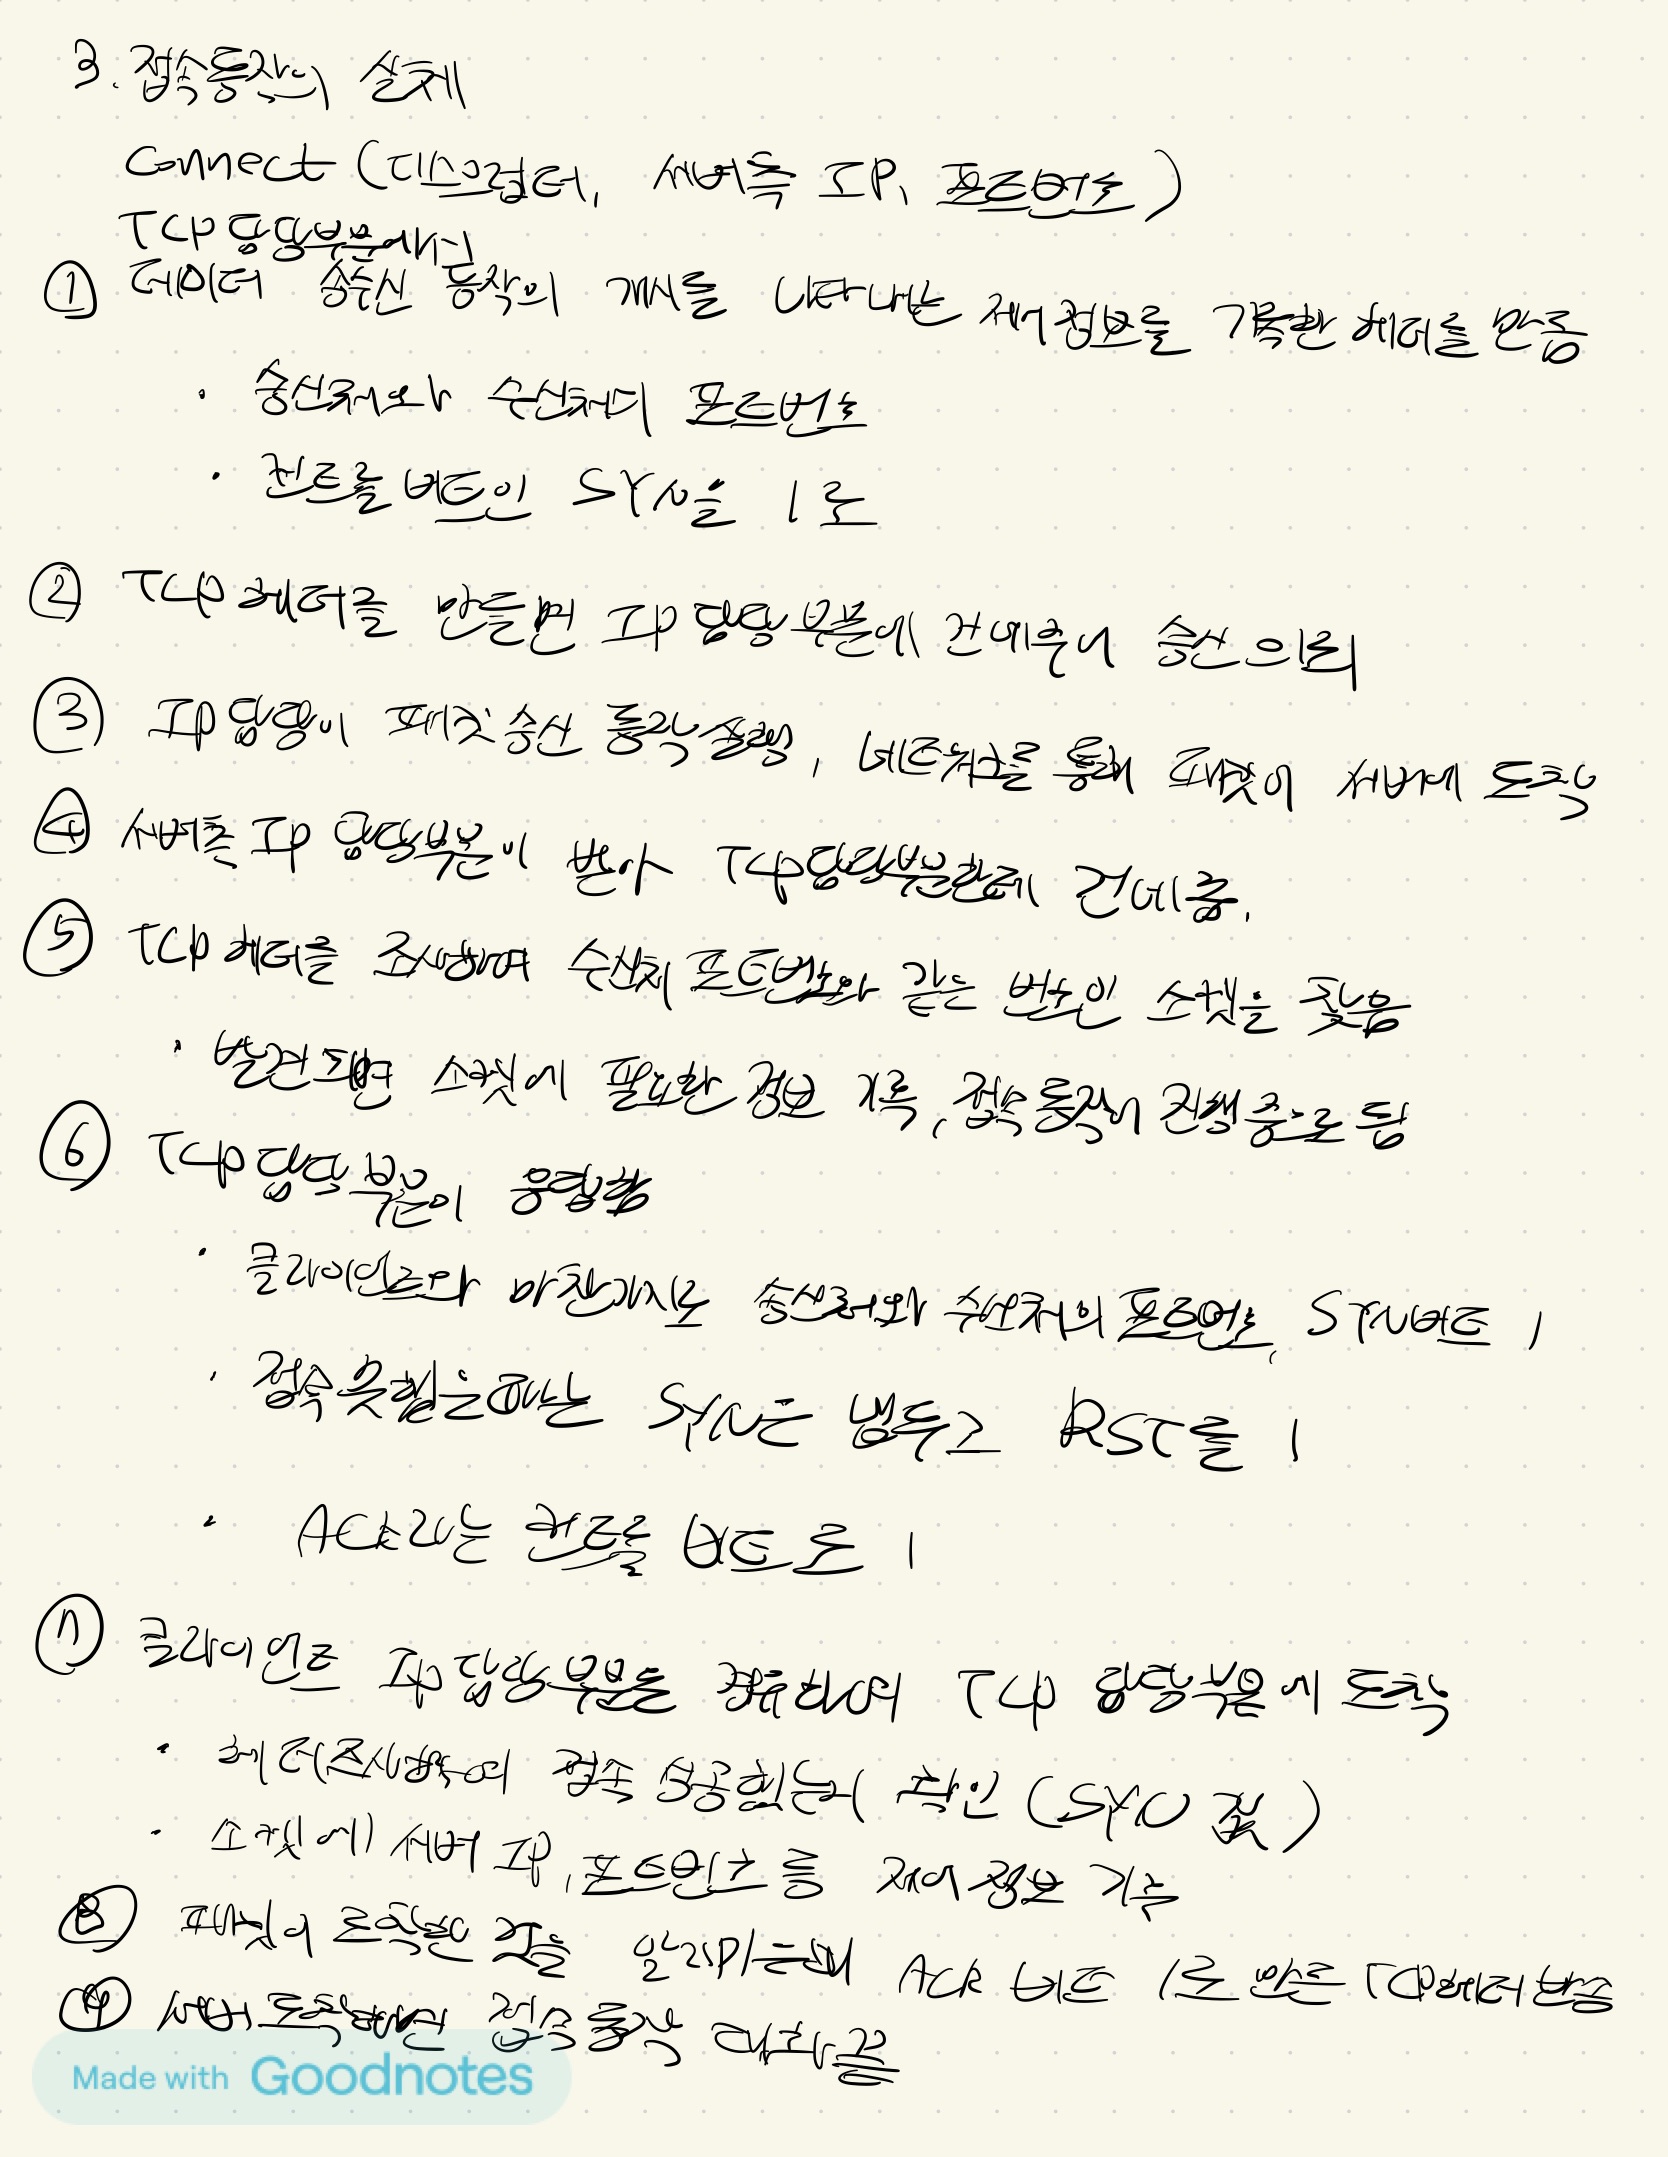 3. 접속동작의 실체
Connect (디스크립터, 서버측 IP, 포트번호)
TCP 담당부분에서
① 데이터 송수신 동작의 개시를 나타내는 제어정보를 기록한 헤더를 만듬
· 송신처와 수신처의 포트번호
· 컨트롤 비트인 SYN을 1로
② TCP 헤더를 만들면 IP 담당 부분에 건네주어 송신 의뢰
③ IP 담당이 패킷 송신 동작 실행, 네트워크를 통해 패킷이 서버에 도착
④ 서버측 IP 담당부분이 받아 TCP 담당부분한테 건네줌.
⑤ TCP 헤더를 조사하여 수신처 포트번호와 같은 번호인 소켓을 찾음
· 발견되면 소켓에 필요한 정보 기록, 접속 동작이 진행중으로 됨
⑥ TCP 담당 부분이 응답함
· 클라이언트와 마찬가지로 송신처와 수신처의 포트번호, SYN비트 1
· 접속 못했을때는 SYN은 냅두고 RST를 1
· ACK라는 컨트롤 비트로 1
⑦ 클라이언트 IP 담당 부분을 경유하여 TCP 담당부분에 도착
· 헤더조사하여 접속 성공했는지 확인 (SYN 값)
· 소켓에 서버 IP, 포트번호 등 제어정보 기록
⑧ 패킷이 도착한 것을 알리기 위해 ACK 비트 1로 만든 TCP헤더 반송
⑨ 서버 도착하면 접속 동작 대화 끝
Made with Goodnotes